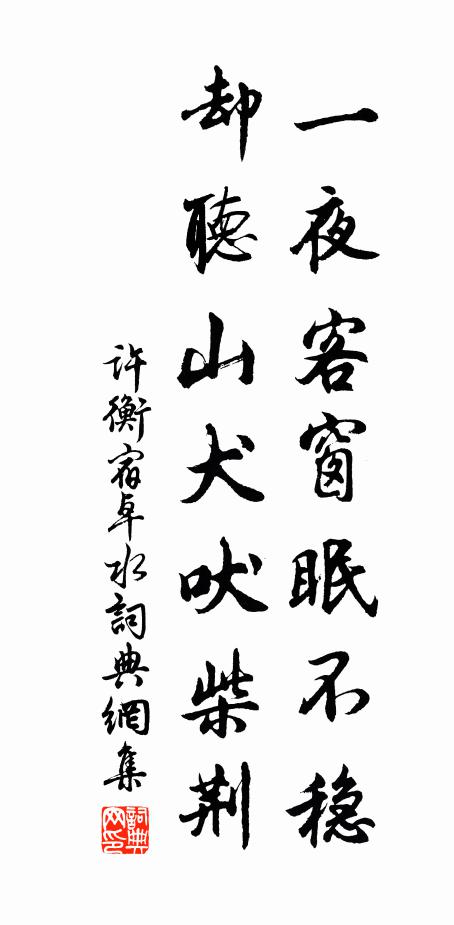 一夜客窗眠不稳
却聽山犬吠柴荆
許衡宿卓水詞典網集
詞典网印